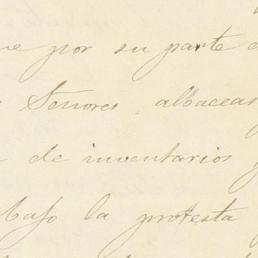 por su parte
Señores albaceas
de inventarios
bajo la protesta